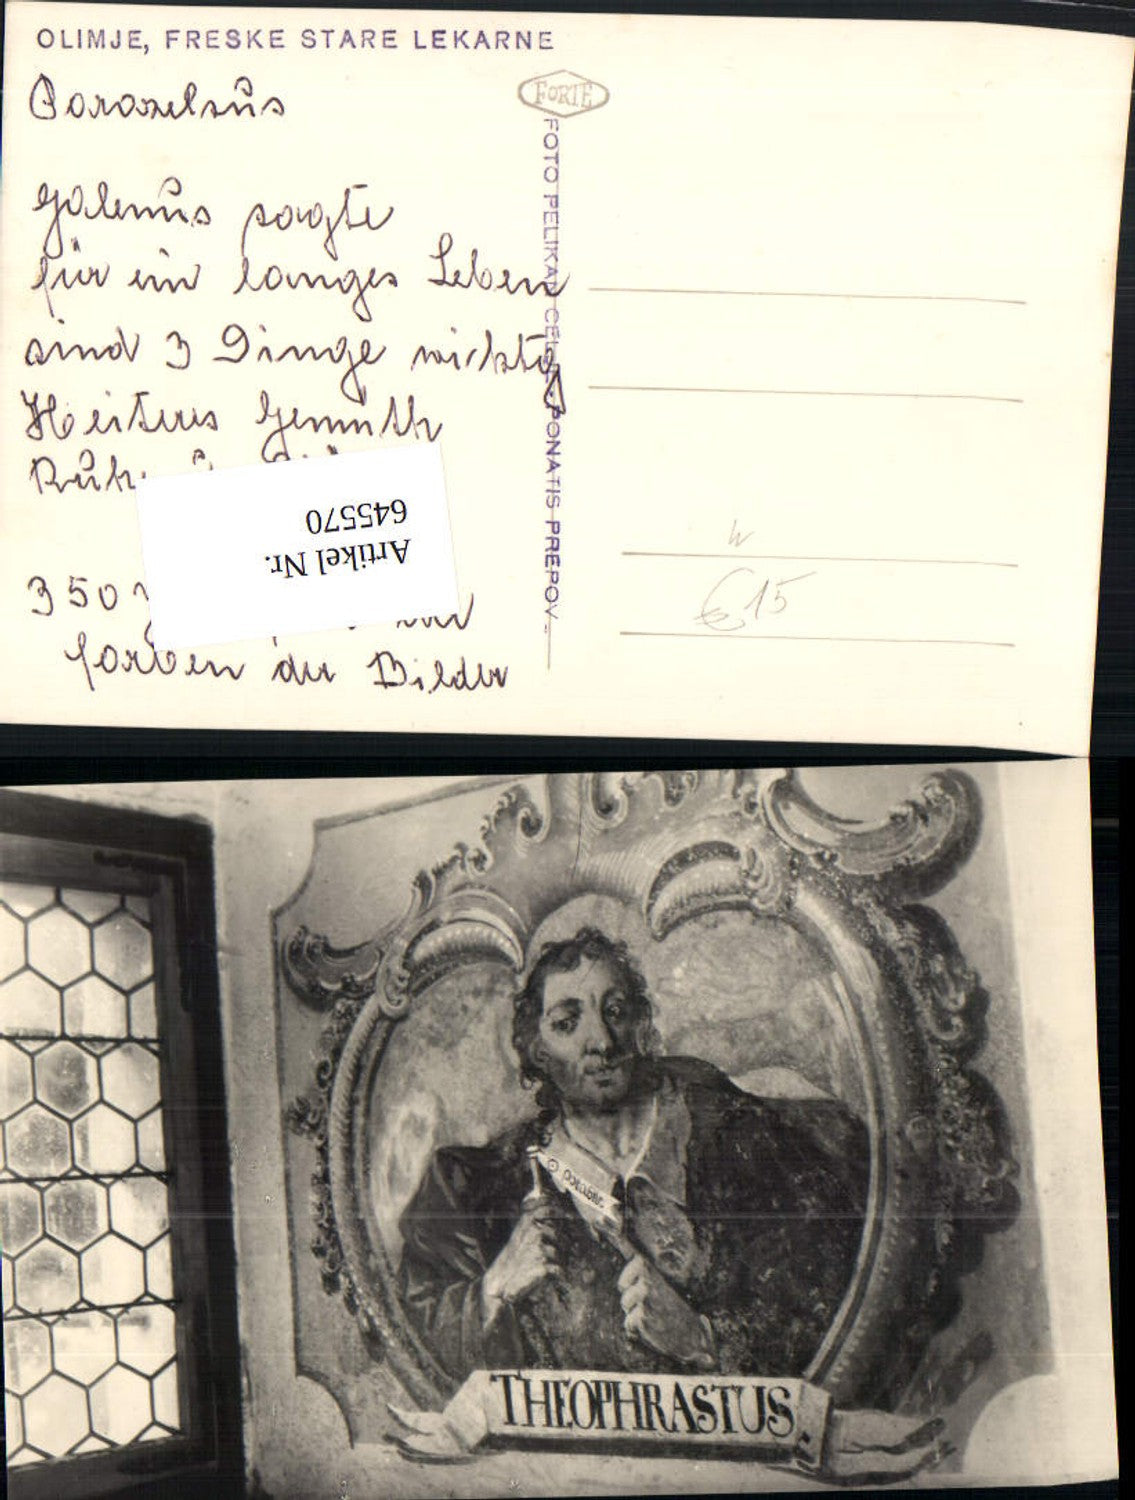 OLIMJE, FRESKE STARE LEKARNE
FORTE
Paracelsus
Galenus sagte
für ein langes Leben
sind 3 Dinge wichtig
Heiteres Gemüth
Ruhe
350
farben der Bilder
FOTO PELIKAN CELJE - PONATIS PREPOV.
Artikel Nr.
645570
W
€15
THEOPHRASTUS